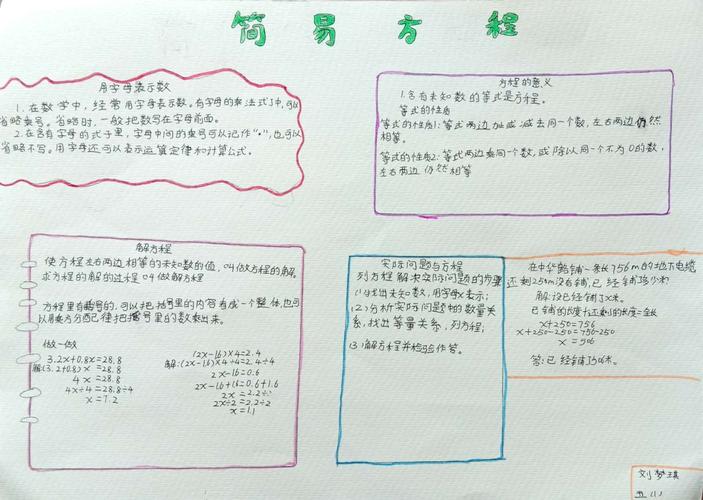 简易方程
用字母表示数
1.在数学中,经常用字母表示数。有字母的乘法式子中,可以
省略乘号。省略时,一般把数写在字母前面。
2.在含有字母的式子里,字母中间的乘号可以记作"•",也可以
省略不写。用字母还可以表示运算定律和计算公式。
方程的意义
1.含有未知数的等式是方程。
等式的性质
等式的性质1:等式两边加或减去同一个数,左右两边仍然
相等。
等式的性质2:等式两边乘同一个数,或除以同一个不为0的数,
左右两边仍然相等
解方程
使方程左右两边相等的未知数的值,叫做方程的解。
求方程的解的过程叫做解方程
方程里有括号的,可以把括号里的内容看成一个整体,也可
以用乘方分配律把括号里的数乘出来。
做一做
3.2x+0.8x=28.8
解:(3.2+0.8)x=28.8
4x=28.8
4x÷4=28.8÷4
x=7.2
(2x-16)×4=2.4
解:(2x-16)×4÷4=2.4÷4
2x-16=0.6
2x-16+16=0.6+1.6
2x=2.2
2x÷2=2.2÷2
x=1.1
实际问题与方程
列方程解决实际问题的步骤
(1)找出未知数,用字母x表示;
(2)分析实际问题中的数量关
系,找出等量关系,列方程;
(3)解方程并检验作答。
在中华路铺一条长756m的地下电缆
还剩250m没有铺,已经铺了多少米?
解:设已经铺了x米。
已铺的长度+还剩的长度=全长
x+250=756
x+250-250=756-250
x=506
答:已经铺了506米。
刘梦琪
五(1)